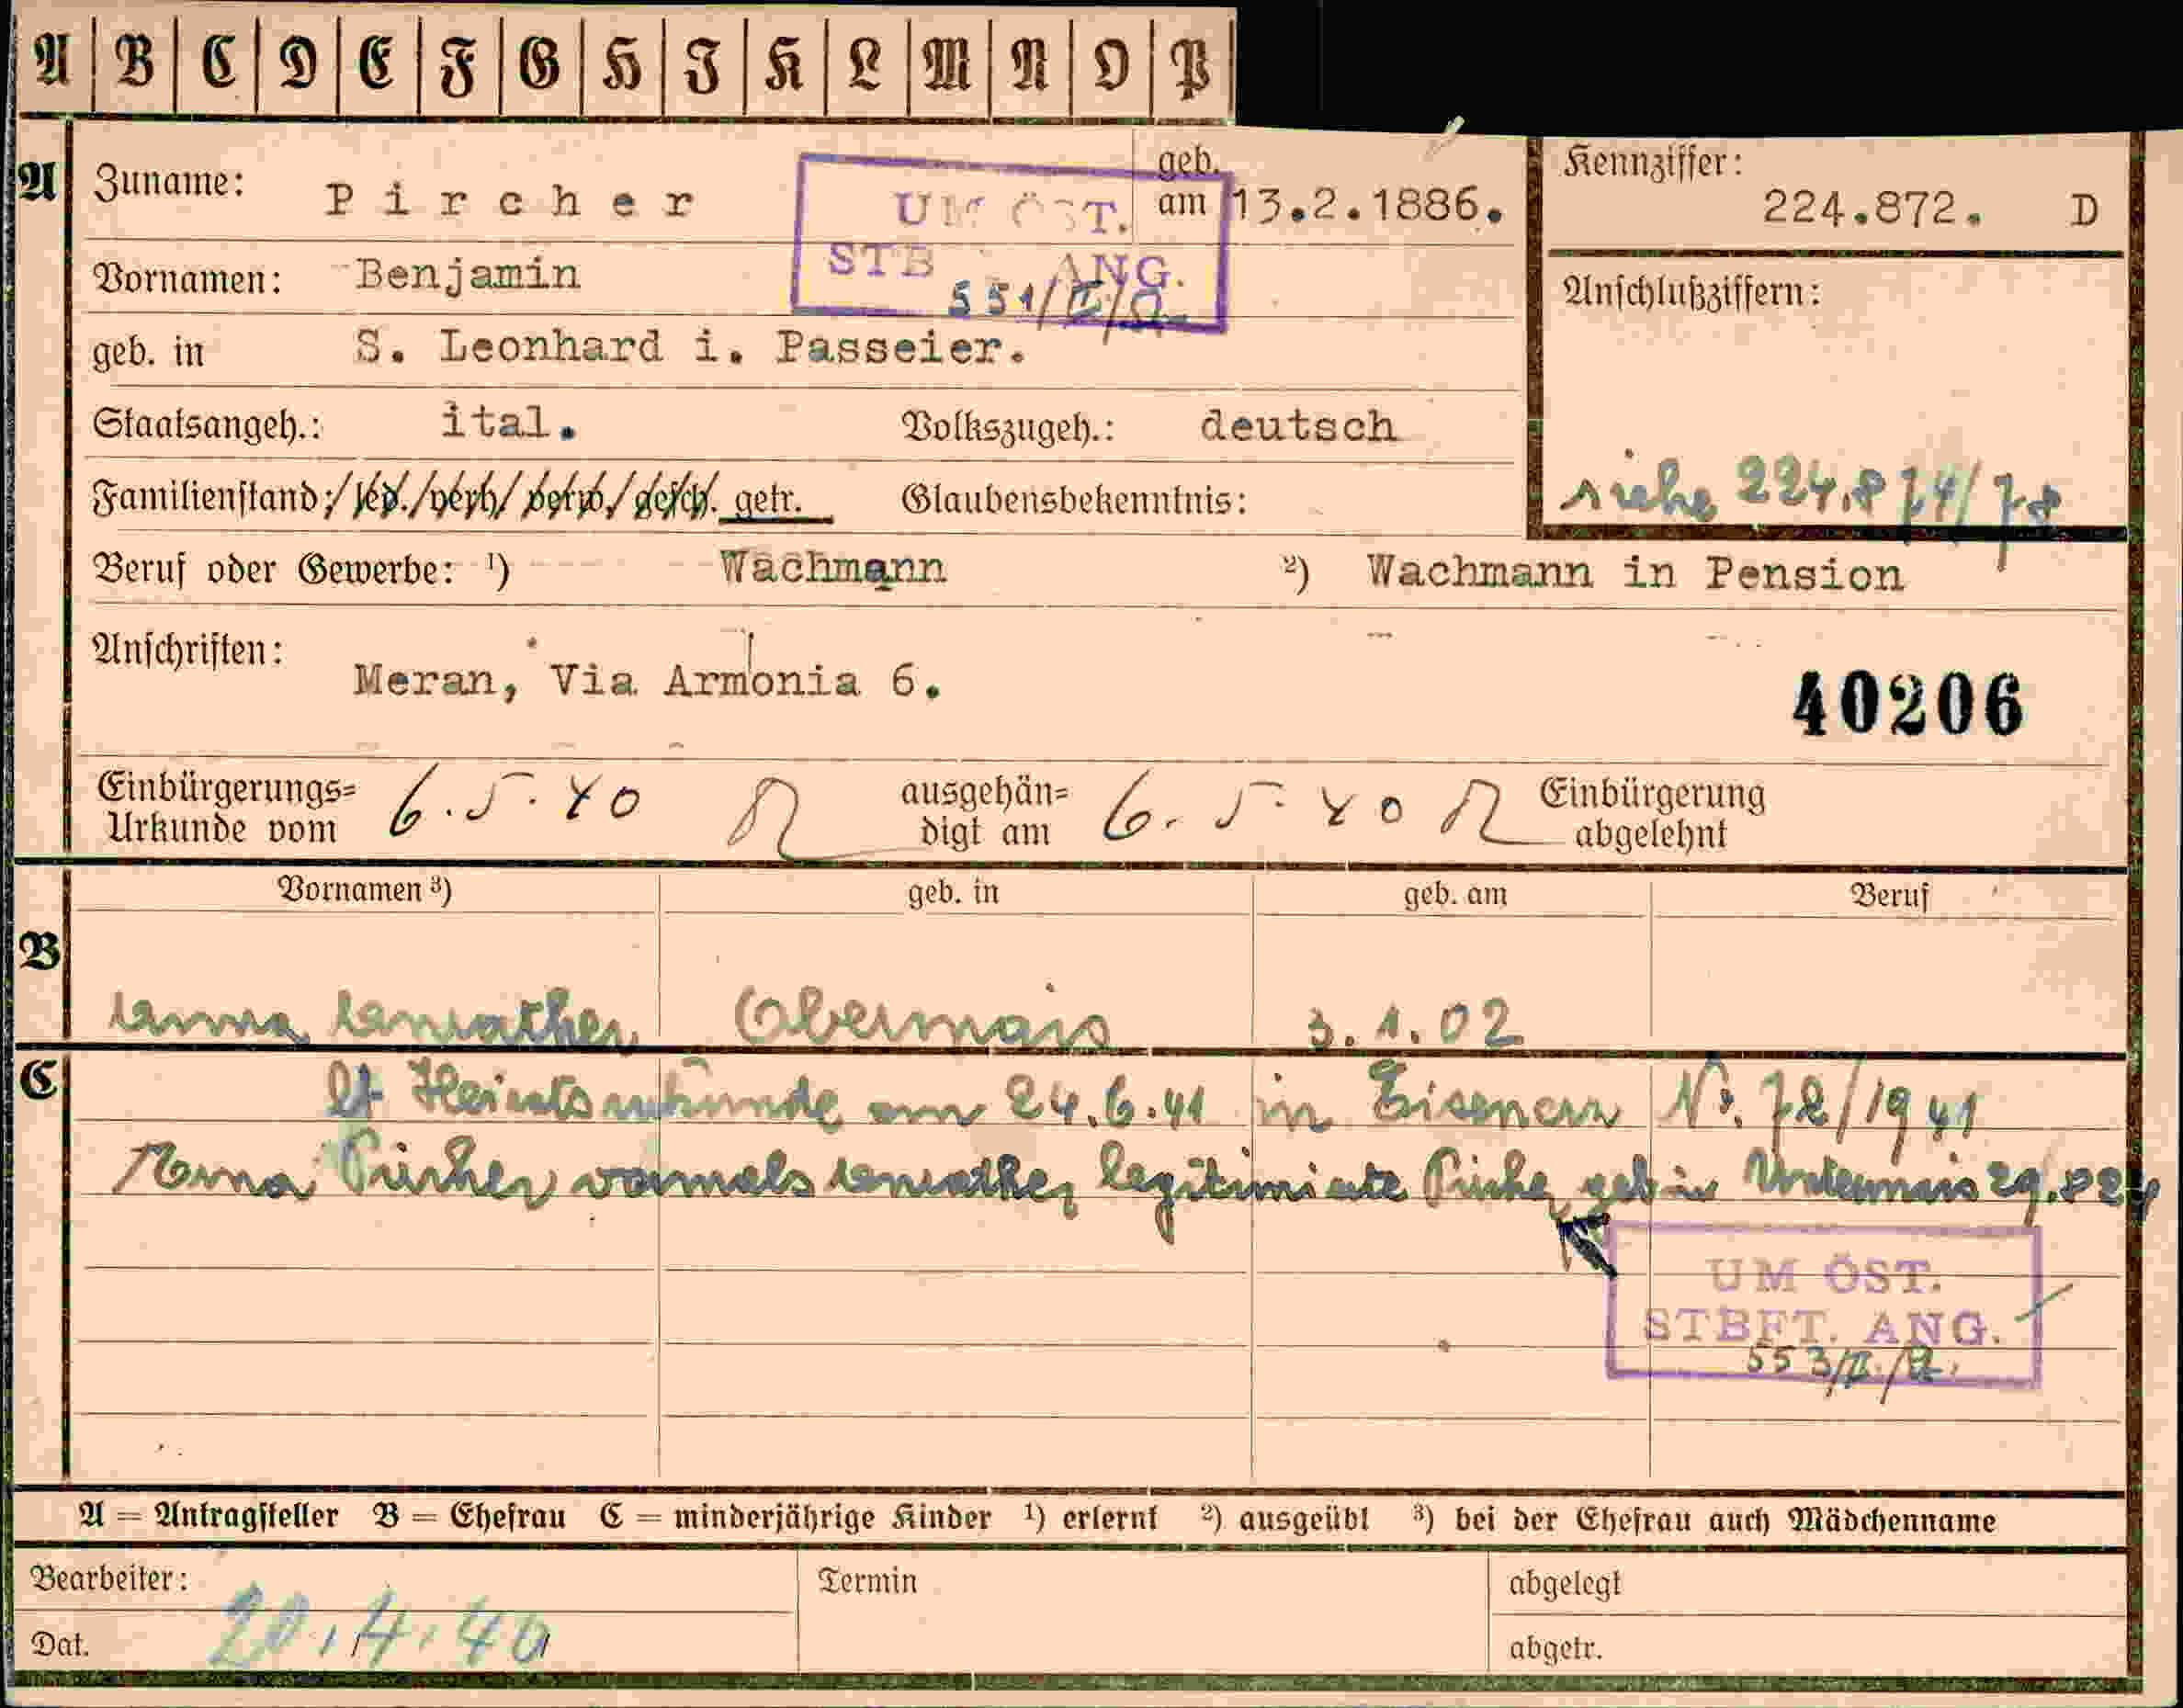 A B C D E F G H I K L M N O P
A Zuname: Pircher geb. am 13.2.1886. Kennziffer: 224.872. D
UM ÖST.
STB ANG.
551/II/
Vornamen: Benjamin
Anschlußziffern:
geb. in S. Leonhard i. Passeier.
Staatsangeh.: ital. Volkszugeh.: deutsch
siehe 224.874/78
Familienstand: led./verh/verw./gesch. getr. Glaubensbekenntnis:
Beruf oder Gewerbe: 1) Wachmann 2) Wachmann in Pension
Anschriften: Meran, Via Armonia 6.
40206
Einbürgerungs= Urkunde vom 6.5.40 ausgehän= digt am 6.5.40 Einbürgerung abgelehnt
Vornamen 3) geb. in geb. am Beruf
B
Anna Obermais 3.1.02
C
lt Heiratsurkunde am 24.6.41 in Eisenerz Nr. 72/1941
Erna Pircher vormals legitimierte Pircher geb in Untermais 29.8.24
UM ÖST.
STBFT. ANG.
553/II/
A = Antragsteller B = Ehefrau C = minderjährige Kinder 1) erlernt 2) ausgeübt 3) bei der Ehefrau auch Mädchenname
Bearbeiter: Termin abgelegt
Dat. 20.4.40 abgetr.